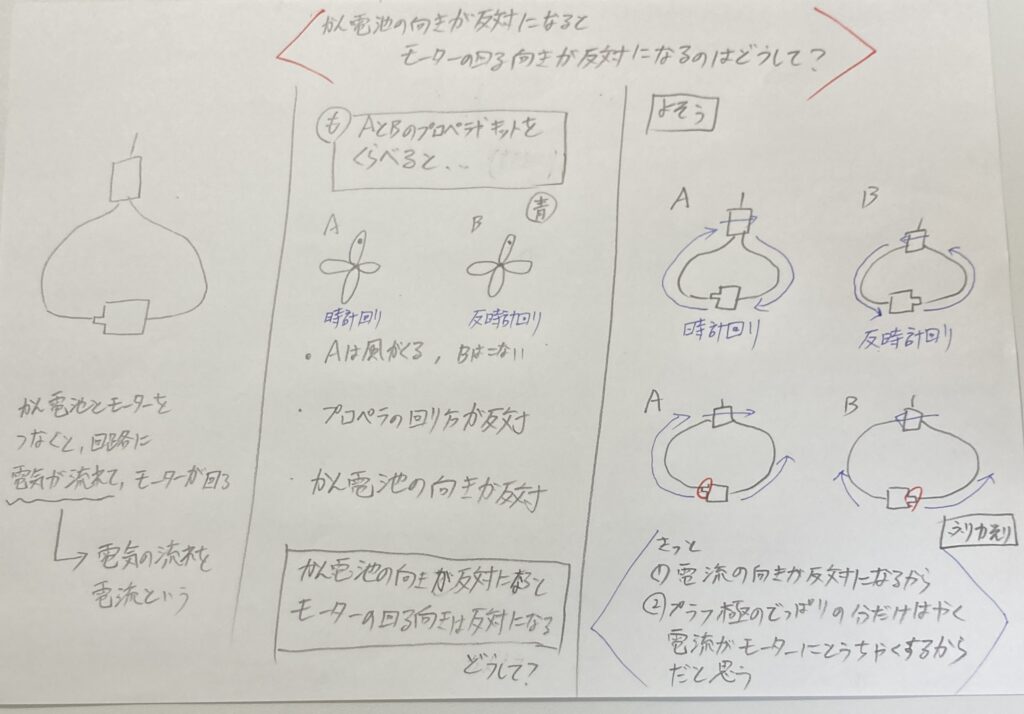 かん電池の向きが反対になると
モーターの回る向きが反対になるのはどうして？
かん電池とモーターを
つなぐと、回路に
電気が流れて、モーターが回る
電気の流れを
電流という
も
AとBのプロペラキットを
くらべると、..
青
A
B
時計回り
反時計回り
・Aは風がくる，Bはこない
・プロペラの回り方が反対
・かん電池の向きが反対
かん電池の向きが反対になると
モーターの回る向きは反対になる
どうして？
よそう
A
B
時計回り
反時計回り
A
B
ふりかえり
きっと
① 電流の向きが反対になるから
② プラス極のでっぱりの分だけはやく
電流がモーターにとうちゃくするから
だと思う